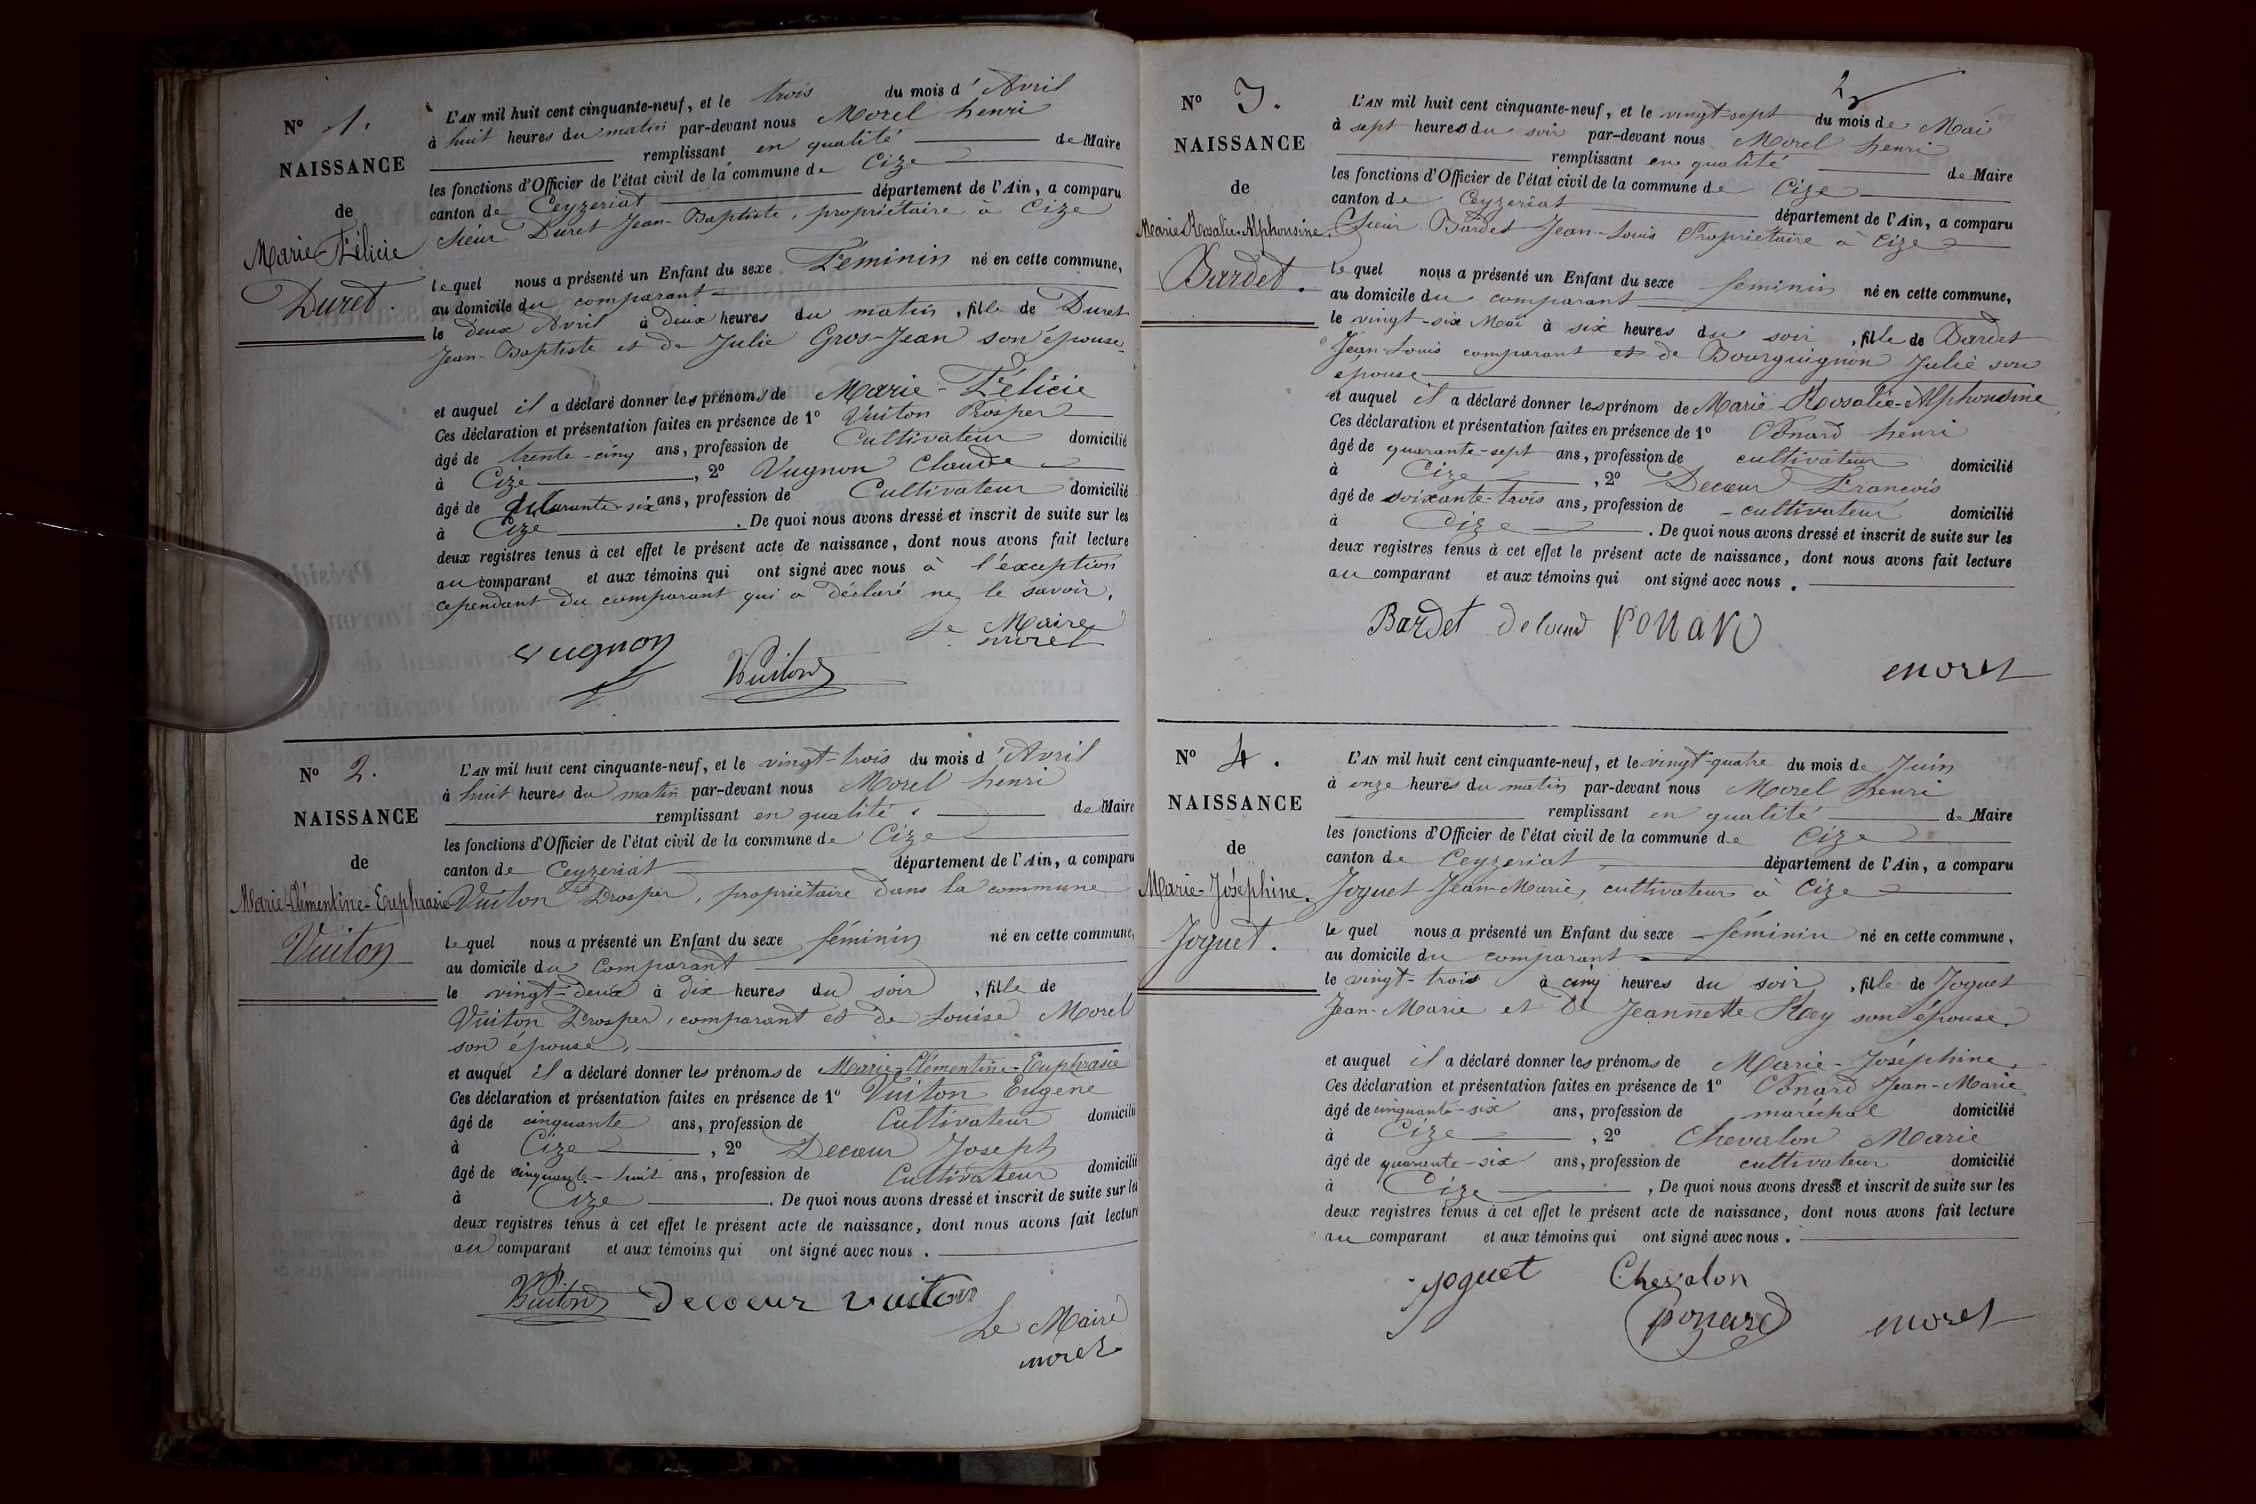 N° 1.
NAISSANCE
de
Marie Félicie
Duret.
L'AN mil huit cent cinquante-neuf, et le trois du mois d'Avril
à huit heures du matin par-devant nous Morel henri
remplissant en qualité de Maire
les fonctions d'Officier de l'état civil de la commune de Cize
canton de Ceyzeriat département de l'Ain, a comparu
sieur Duret Jean-Baptiste, propriétaire à Cize
lequel nous a présenté un Enfant du sexe Féminin né en cette commune,
au domicile du comparant
le deux Avril à deux heures du matin, fille de Duret
Jean-Baptiste et de Julie Gros-Jean son épouse
et auquel il a déclaré donner les prénoms de Marie-Félicie
Ces déclaration et présentation faites en présence de 1° Vuiton Prosper
âgé de trente-cinq ans, profession de Cultivateur domicilié
à Cize, 2° Vugnon Claude
âgé de quarante-six ans, profession de Cultivateur domicilié
à Cize. De quoi nous avons dressé et inscrit de suite sur les
deux registres tenus à cet effet le présent acte de naissance, dont nous avons fait lecture
au comparant et aux témoins qui ont signé avec nous à l'éxception
cependant du comparant qui a déclaré ne le savoir.
Le Maire
vugnon Vuiton morel
N° 2.
NAISSANCE
de
Marie-Clémentine-Euphrasie
Vuiton
L'AN mil huit cent cinquante-neuf, et le vingt-trois du mois d'Avril
à huit heures du matin par-devant nous Morel henri
remplissant en qualité de Maire
les fonctions d'Officier de l'état civil de la commune de Cize
canton de Ceyzeriat département de l'Ain, a comparu
Vuiton Prosper, propriétaire dans la commune
lequel nous a présenté un Enfant du sexe féminin né en cette commune,
au domicile du Comparant
le vingt-deux à dix heures du soir, fille de
Vuiton Prosper, comparant et de Louise Morel
son épouse,
et auquel il a déclaré donner les prénoms de Marie-Clémentine-Euphrasie
Ces déclaration et présentation faites en présence de 1° Vuiton Eugene
âgé de cinquante ans, profession de Cultivateur domicilié
à Cize, 2° Decœur Joseph
âgé de cinquante-huit ans, profession de Cultivateur domicilié
à Cize. De quoi nous avons dressé et inscrit de suite sur les
deux registres tenus à cet effet le présent acte de naissance, dont nous avons fait lecture
au comparant et aux témoins qui ont signé avec nous.
Vuiton Decoeur vuiton
Le Maire
morel
2
N° 3.
NAISSANCE
de
Marie-Rosalie-Alphonsine.
Bardet.
L'AN mil huit cent cinquante-neuf, et le vingt-sept du mois de Mai
à sept heures du soir par-devant nous Morel henri
remplissant en qualité de Maire
les fonctions d'Officier de l'état civil de la commune de Cize
canton de Ceyzeriat département de l'Ain, a comparu
Sieur Bardet Jean-Louis Propriétaire à Cize
lequel nous a présenté un Enfant du sexe féminin né en cette commune,
au domicile du comparant
le vingt-six Mai à six heures du soir, fille de Bardet
Jean-Louis comparant et de Bourguignon Julie son
épouse
et auquel il a déclaré donner les prénom de Marie-Rosalie-Alphonsine,
Ces déclaration et présentation faites en présence de 1° Ponard henri
âgé de quarante-sept ans, profession de cultivateur domicilié
à Cize, 2° Decœur Francois
âgé de soixante-trois ans, profession de cultivateur domicilié
à Cize. De quoi nous avons dressé et inscrit de suite sur les
deux registres tenus à cet effet le présent acte de naissance, dont nous avons fait lecture
au comparant et aux témoins qui ont signé avec nous.
Bardet ponard
morel
N° 4.
NAISSANCE
de
Marie-Joséphine.
Joguet.
L'AN mil huit cent cinquante-neuf, et le vingt-quatre du mois de Juin
à onze heures du matin par-devant nous Morel henri
remplissant en qualité de Maire
les fonctions d'Officier de l'état civil de la commune de Cize
canton de Ceyzeriat département de l'Ain, a comparu
Joguet Jean-Marie, cultivateur à Cize
lequel nous a présenté un Enfant du sexe féminin né en cette commune,
au domicile du comparant
le vingt-trois à cinq heures du soir, fille de Joguet
Jean-Marie et de Jeannette Rey son épouse.
et auquel il a déclaré donner les prénoms de Marie-Joséphine,
Ces déclaration et présentation faites en présence de 1° Ponard Jean-Marie
âgé de cinquante-six ans, profession de maréchal domicilié
à Cize, 2° Chevalon Marie
âgé de quarante-six ans, profession de cultivateur domicilié
à Cize, De quoi nous avons dressé et inscrit de suite sur les
deux registres tenus à cet effet le présent acte de naissance, dont nous avons fait lecture
au comparant et aux témoins qui ont signé avec nous.
joguet Chevalon
ponard morel